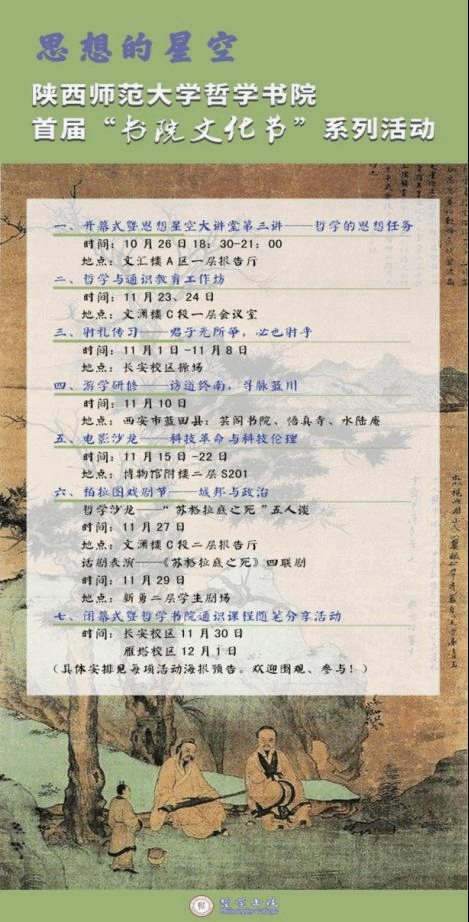 思想的星空
陕西师范大学哲学书院
首届“书院文化节”系列活动
一、开幕式暨思想星空大讲堂第三讲——哲学的思想任务
时间：10月26日18：30-21：00
地点：文汇楼A区一层报告厅
二、哲学与通识教育工作坊
时间：11月23、24日
地点：文澜楼C段一层会议室
三、射礼传习——君子无所争，必也射乎
时间：11月1日-11月8日
地点：长安校区操场
四、游学研修——访道终南，寻脉蓝川
时间：11月10日
地点：西安市蓝田县：芸阁书院、悟真寺、水陆庵
五、电影沙龙——科技革命与科技伦理
时间：11月15日-22日
地点：博物馆附楼二层S201
六、柏拉图戏剧节——城邦与政治
哲学沙龙——“苏格拉底之死”五人谈
时间：11月27日
地点：文澜楼C段二层报告厅
话剧表演——《苏格拉底之死》四联剧
时间：11月29日
地点：新勇二层学生剧场
七、闭幕式暨哲学书院通识课程随笔分享活动
时间：长安校区11月30日
雁塔校区12月1日
（具体安排见每项活动海报预告。欢迎围观、参与！）
哲学书院
Philosophy College